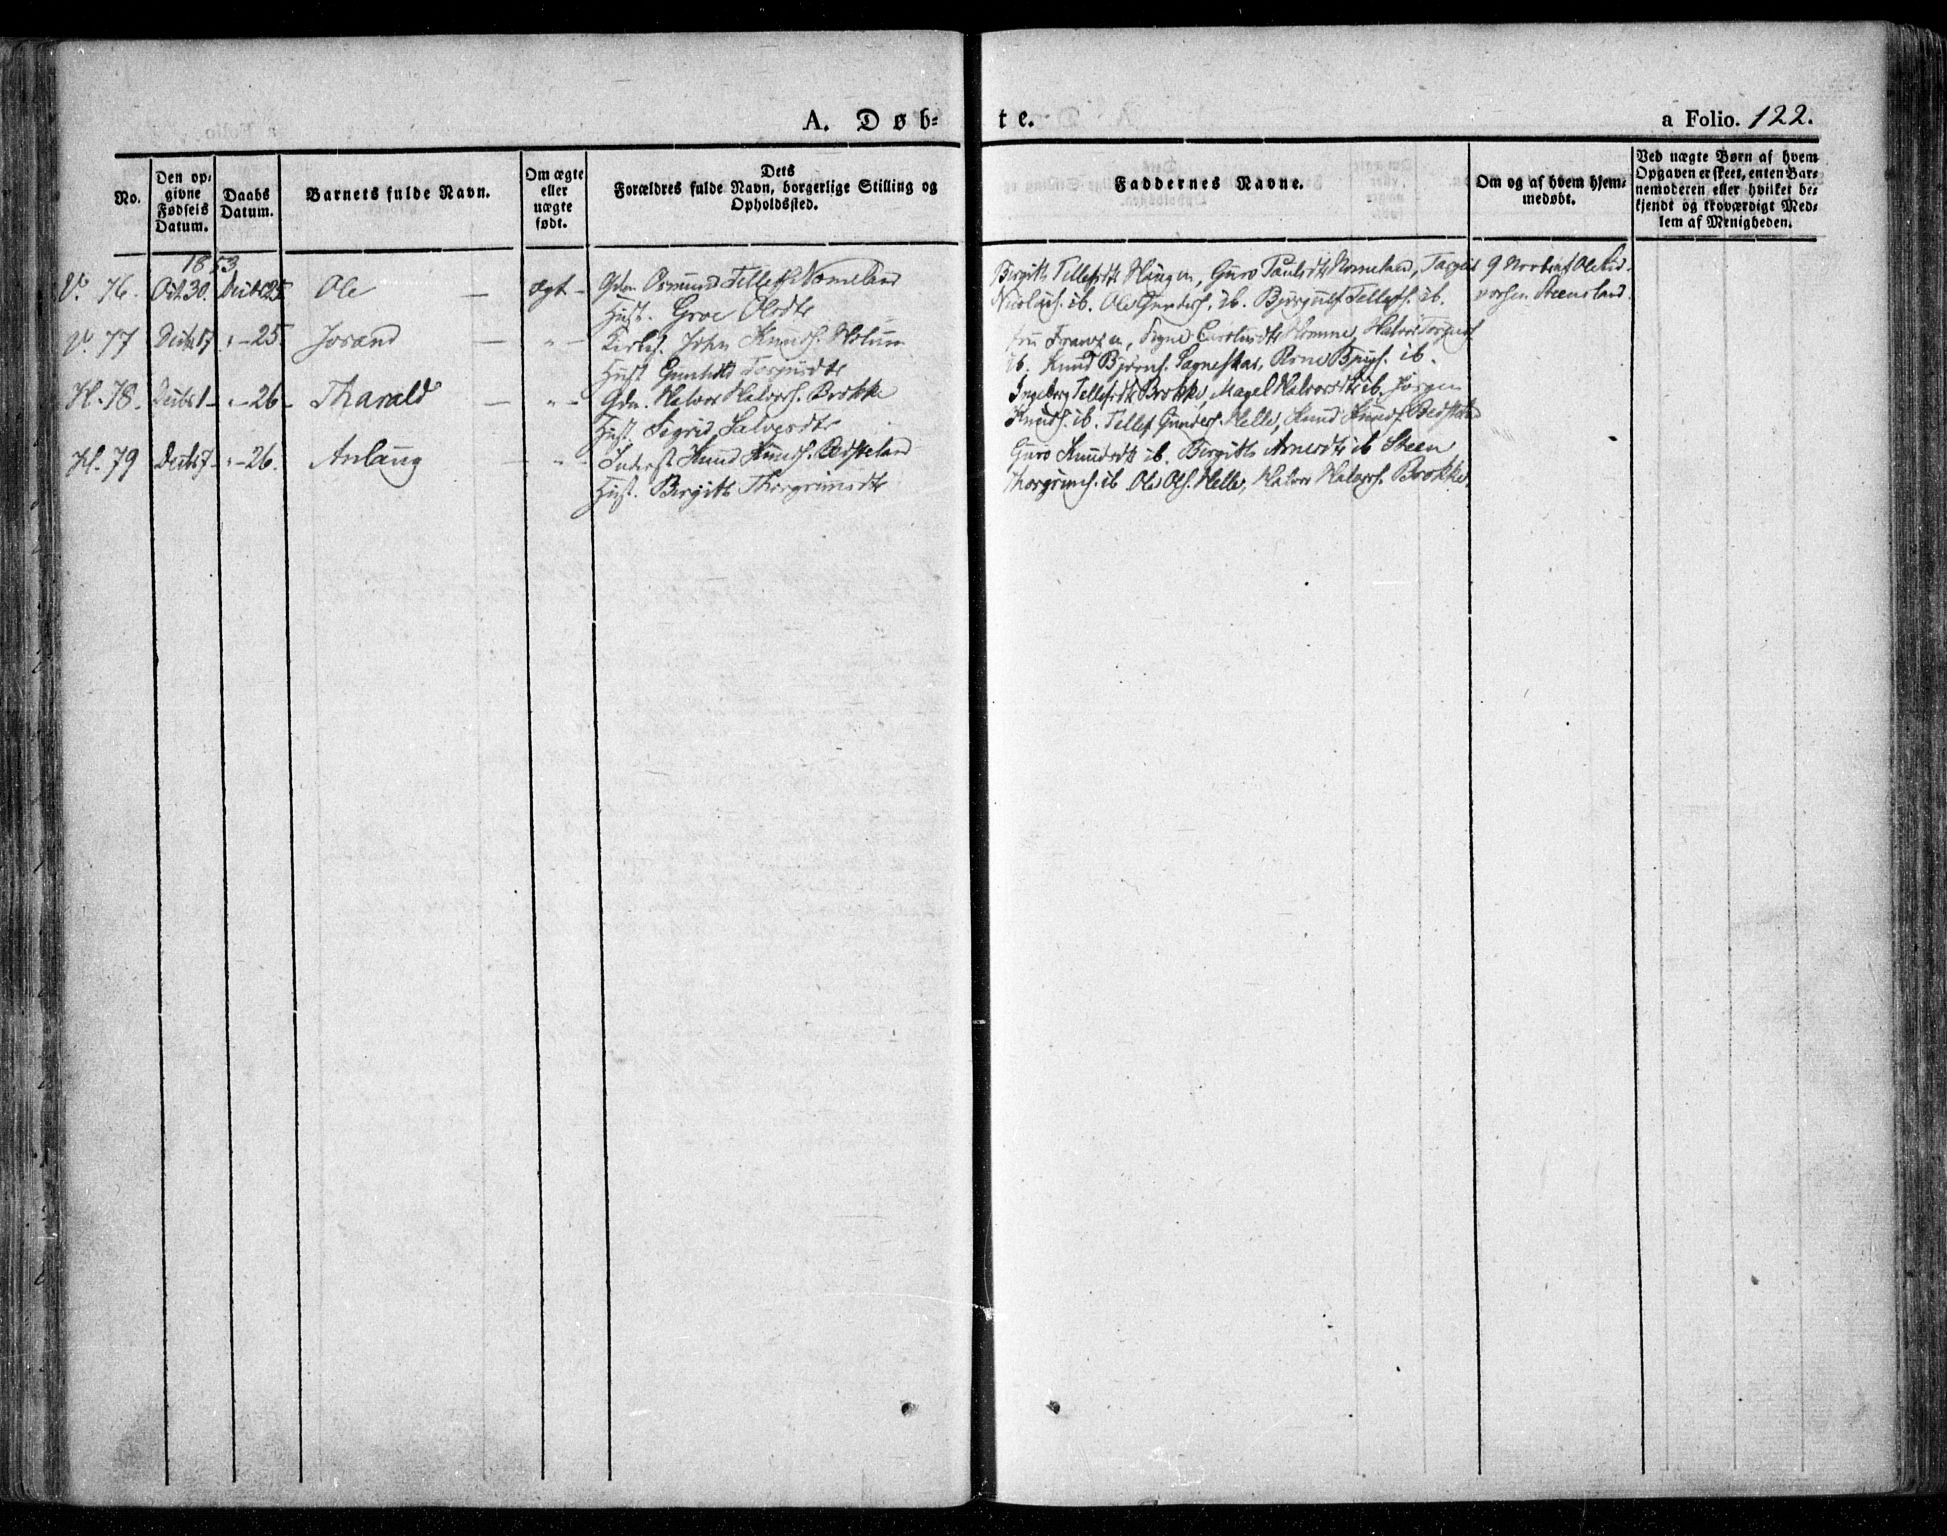 A. Døb-
te.
a Folio. 122.
No.
Den op-
givne
Fødsels
Datum.
Daabs
Datum.
Barnets fulde Navn.
Om ægte
eller
uægte
født.
Dets
Forældres fulde Navn, borgerlige Stilling og
Opholdssted.
Faddernes Navne.
Om og af hvem hjem-
medøbt.
Ved uægte Børn af hvem
Opgaven er skeet, enten Bar-
nemoderen eller hvilket be-
kjendt og troværdigt Med-
lem af Menigheden.
1853
V. 76. Oct. 30. Decbr 25 Ole — ægt - Gdm Osmund Tellefs. Nomeland
Hust. Groe Olsdtr
Birgitte Tellefsdtr Haugen, Guro Paulsdtr Nomeland, Targeis
Nicolais. ib. Ole Gunders. ib. Bjørgulf Tellefs. ib.
9 Novbr af Ole
Steensland.
V. 77 Decbr 17 " - 25. Jorand — " - John Knuds. Holum
Hust. Gunhild Torjusdtr
fru Franzen, Signe Homme, Halvor Torjuss.
ib. Knud Bjørns. Sagneskar, Arne ib.
H. 78. Decbr 1 - " - 26 - Tharald — " - Gdm. Halvor Halvors. Brokke
Hust. Sigrid Salvesdtr
Ingeborg Tellefsdtr Brokke, Margel Halvorsdtr ib. Jørgen
Knuds. ib. Tellef Gunders. Helle, Knud Knuds. Bedsteland
H. 79 Decbr 7 - " - 26. Anlaug — " - Inderst Knud Knuds. Bedsteland
Hust. Birgitte Thorgrimsdtr
Guro Knudsdtr ib. Birgitte Arnesdtr ib Steen
Thorgrims. ib Ole Ols. Helle, Halvor Halvors. Brokke